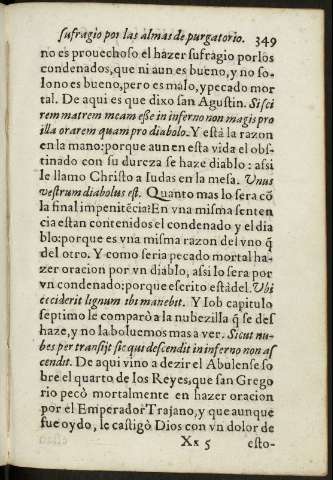 sufragio por las almas de purgatorio. 349
no es prouechoso el hazer sufragio por los
condenados, que ni aun es bueno, y no so-
lo no es bueno, pero es malo, y pecado mor
tal. De aqui es que dixo san Agustin. Si sci
rem matrem meam esse in inferno non magis pro
illa orarem quam pro diabolo. Y està la razon
en la mano: porque aun en esta vida el obs-
tinado con su dureza se haze diablo: assi
le llamo Christo a Iudas en la mesa. Vnus
vestrum diabolus est. Quanto mas lo sera cō
la final impenitēcia? En vna misma senten
cia estan contenidos el condenado y el dia
blo: porque es vna misma razon del vno q̄
del otro. Y como seria pecado mortal ha-
zer oracion por vn diablo, assi lo sera por
vn condenado: porque escrito estâ del. Vbi
ecciderit lignum ibi manebit. Y Iob capitulo
septimo le comparò a la nubezilla q̄ se des
haze, y no la boluemos mas a ver. Sicut nu-
bes per transijt sic qui descendit in inferno non as
cendit. De aqui vino a dezir el Abulense so
bre el quarto de los Reyes, que san Grego
rio pecò mortalmente en hazer oracion
por el Emperador Trajano, y que aunque
fue oydo, le castigò Dios con vn dolor de
Xx 5 esto-